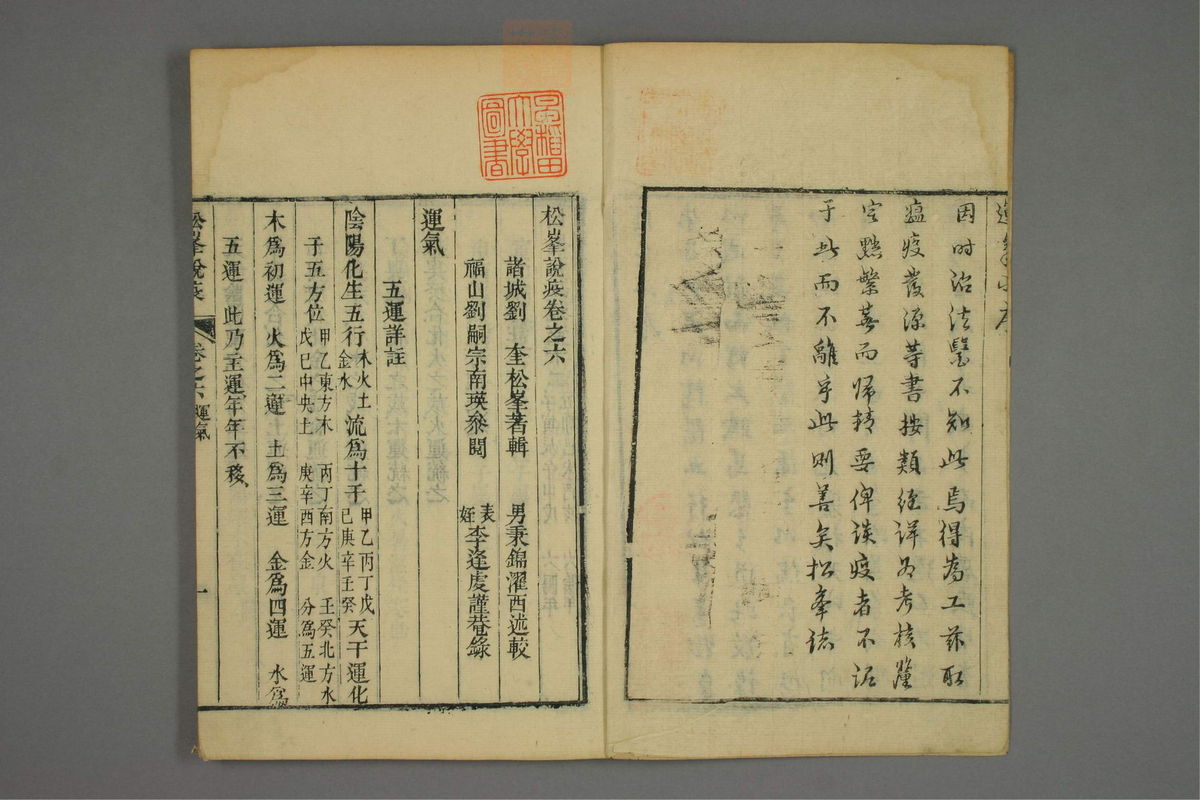 因时治法醫不知此焉得為工茲取
瘟疫發源等書按類經詳為考核釐
定黜繁蕪而歸精要俾談疫者不泥
于此而不離乎此則善矣松峯誌
早稲田大學圖書
松峯說疫卷之六
諸城劉 奎松峯著輯 男秉錦濯西述較
福山劉嗣宗南瑛叅閱 表姪李逢虔謹菴錄
運氣
五運詳註
陰陽化生五行木火土金水流為十干甲乙丙丁戊己庚辛壬癸天干運化
于五方位甲乙東方木 丙丁南方火 壬癸北方水 戊己中央土 庚辛西方金 分為五運
木為初運 火為二運 土為三運 金為四運 水為
五運 此乃主運年年不移
松峯說疫 卷之六 運氣 一